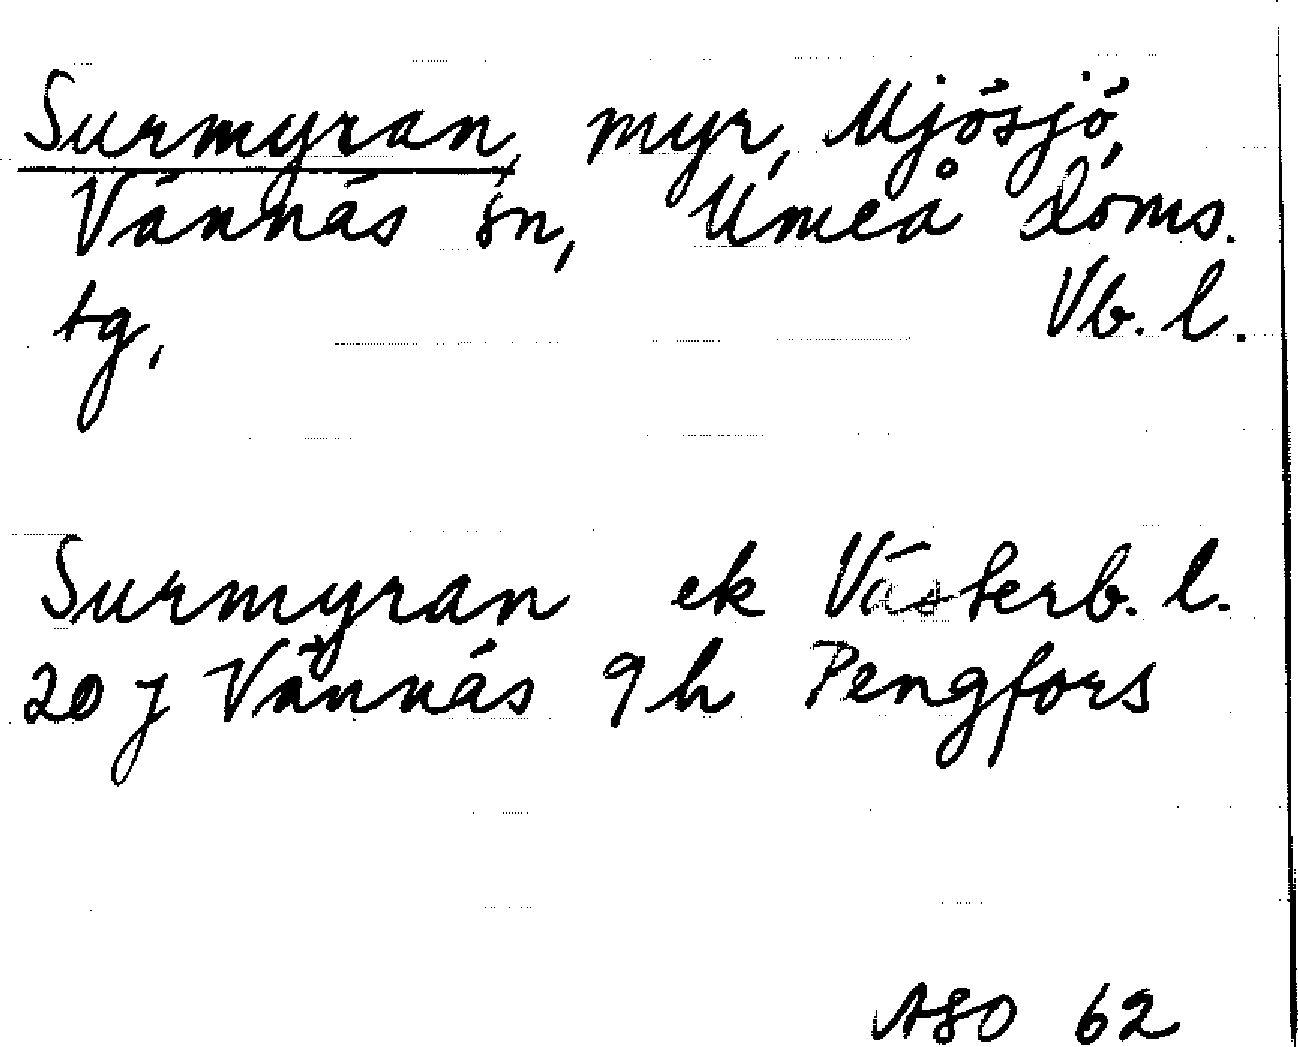 Surmyran, myr, Mjösjö,
Vännäs sn, Umeå doms.
tg, Vb. l.
Surmyran ek Västerb. l.
20 J Vännäs 9 h Pengfors
ASO 62